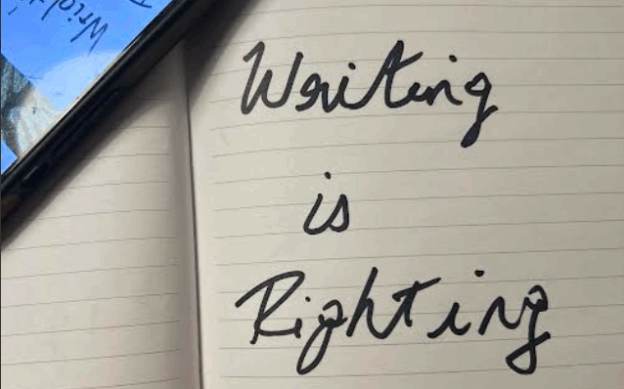 Writing
is
Righting